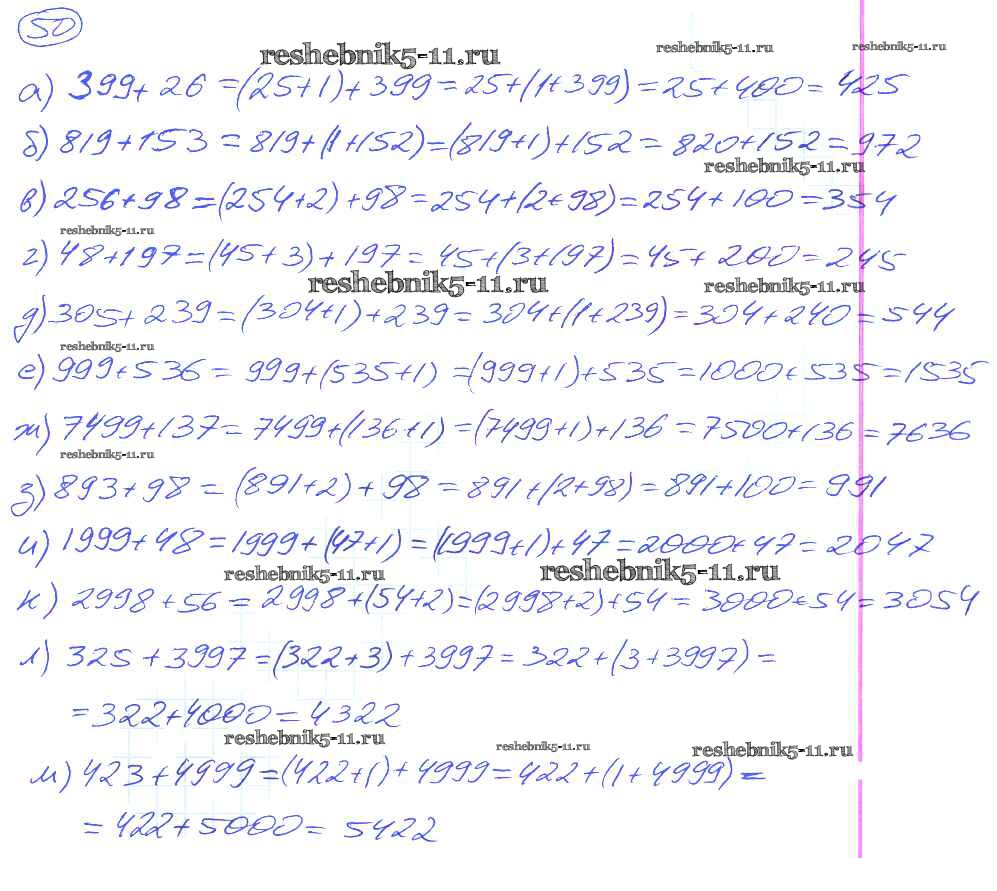 50
reshebnik5-11.ru reshebnik5-11.ru reshebnik5-11.ru
а) 399+26=(25+1)+399=25+(1+399)=25+400=425
б) 819+153=819+(1+152)=(819+1)+152=820+152=972
reshebnik5-11.ru
в) 256+98=(254+2)+98=254+(2+98)=254+100=354
reshebnik5-11.ru
г) 48+197=(45+3)+197=45+(3+197)=45+200=245
reshebnik5-11.ru reshebnik5-11.ru
д) 305+239=(304+1)+239=304+(1+239)=304+240=544
reshebnik5-11.ru
е) 999+536=999+(535+1)=(999+1)+535=1000+535=1535
ж) 7499+137=7499+(136+1)=(7499+1)+136=7500+136=7636
reshebnik5-11.ru
з) 893+98=(891+2)+98=891+(2+98)=891+100=991
и) 1999+48=1999+(47+1)=(1999+1)+47=2000+47=2047
reshebnik5-11.ru reshebnik5-11.ru
к) 2998+56=2998+(54+2)=(2998+2)+54=3000+54=3054
л) 325+3997=(322+3)+3997=322+(3+3997)=
=322+4000=4322
reshebnik5-11.ru reshebnik5-11.ru reshebnik5-11.ru
м) 423+4999=(422+1)+4999=422+(1+4999)=
=422+5000=5422